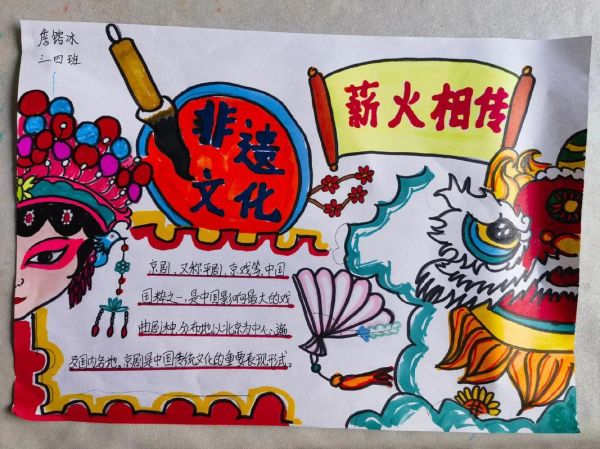 三四班
非遗
文化
薪火相传
京剧,又称平剧,京戏等,中国
国粹之一,是中国影响最大的戏
曲剧种,分布地以北京为中心,遍
及国内各地,京剧是中国传统文化的重要表现形式。